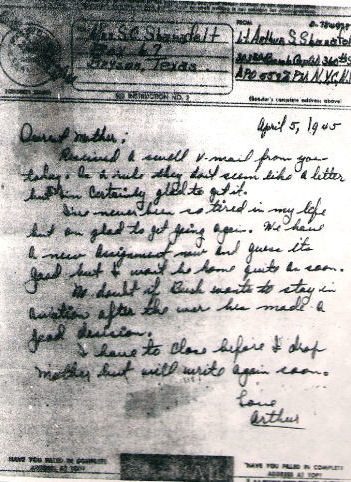 FROM
Mrs S.C.
Box 67
Bryson, Texas
Lt Arthur S.
APO 558 P.M. N.Y.C.
SEE INSTRUCTION NO. 2
(Sender's complete address above)
April 5, 1945
Dearest Mother:
Received a swell V-mail from you
today. As a rule they don't seem like a letter
but am certainly glad to get it.
I've never been so tired in my life
but am glad to get going again. We have
a new assignment now and guess its
good but I wont be home quite as soon.
No doubt if Buck wants to stay in
aviation after the war he's made a
good decision.
I have to close before I drop
Mother but will write again soon.
Love
Arthur
HAVE YOU FILLED IN COMPLETE
ADDRESS AT TOP?
V-MAIL
HAVE YOU FILLED IN COMPLETE
ADDRESS AT TOP?